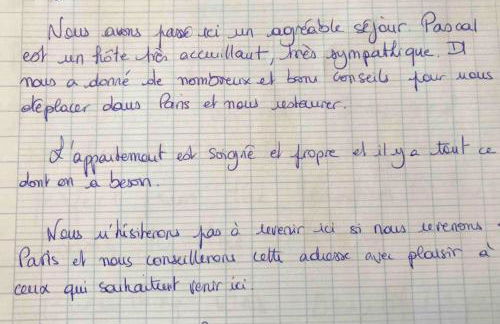 Nous avons passé ici un agréable séjour. Pascal
est un hôte très accuillant, très sympathique. Il
nous a donné de nombreux et bons conseils pour nous
déplacer dans Paris et nous restaurer.
L'appartement est soigné et propre et il y a tout ce
dont on a beson.
Nous n'hésiterons pas à revenir ici si nous revenons
Paris et nous conseillerons cette adresse avec plaisir à
ceux qui souhaitent venir ici.